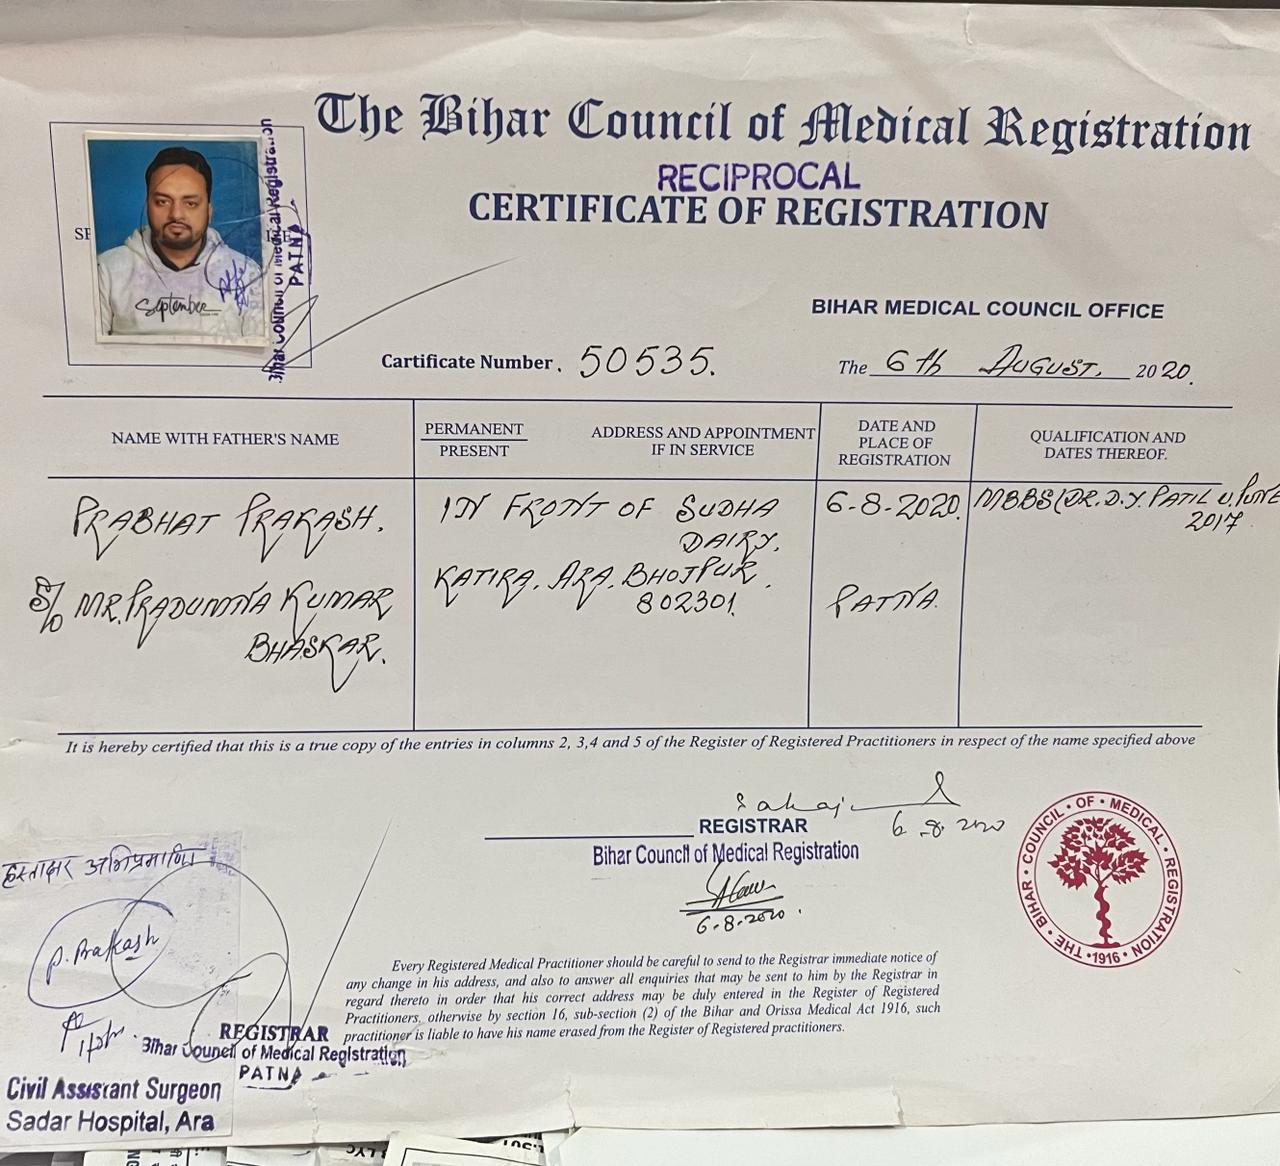 The Bihar Council of Medical Registration
RECIPROCAL
CERTIFICATE OF REGISTRATION
Bihar Council of Medical Registration
PATNA
September
BIHAR MEDICAL COUNCIL OFFICE
Certificate Number. 50535.
The 6th AUGUST, 2020.
NAME WITH FATHER'S NAME
PERMANENT
PRESENT
ADDRESS AND APPOINTMENT
IF IN SERVICE
DATE AND
PLACE OF
REGISTRATION
QUALIFICATION AND
DATES THEREOF.
PRABHAT PRAKASH.
S/o MR. PRADUMNA KUMAR
BHASKAR.
IN FRONT OF SUDHA
DAIRY.
KATIRA. ARA. BHOJPUR.
802301.
6-8-2020.
PATNA.
MBBS(DR.D.Y. PATIL U, PUNE
2017
It is hereby certified that this is a true copy of the entries in columns 2, 3,4 and 5 of the Register of Registered Practitioners in respect of the name specified above
6.8.2020
REGISTRAR
Bihar Council of Medical Registration
6-8-2020.
THE • BIHAR • COUNCIL • OF • MEDICAL • REGISTRATION
• 1916 •
हस्ताक्षर अभिप्रमाणित
P. Prakash
Every Registered Medical Practitioner should be careful to send to the Registrar immediate notice of
any change in his address, and also to answer all enquiries that may be sent to him by the Registrar in
regard thereto in order that his correct address may be duly entered in the Register of Registered
Practitioners, otherwise by section 16, sub-section (2) of the Bihar and Orissa Medical Act 1916, such
practitioner is liable to have his name erased from the Register of Registered practitioners.
REGISTRAR
Bihar Council of Medical Registration
PATNA
Civil Assistant Surgeon
Sadar Hospital, Ara